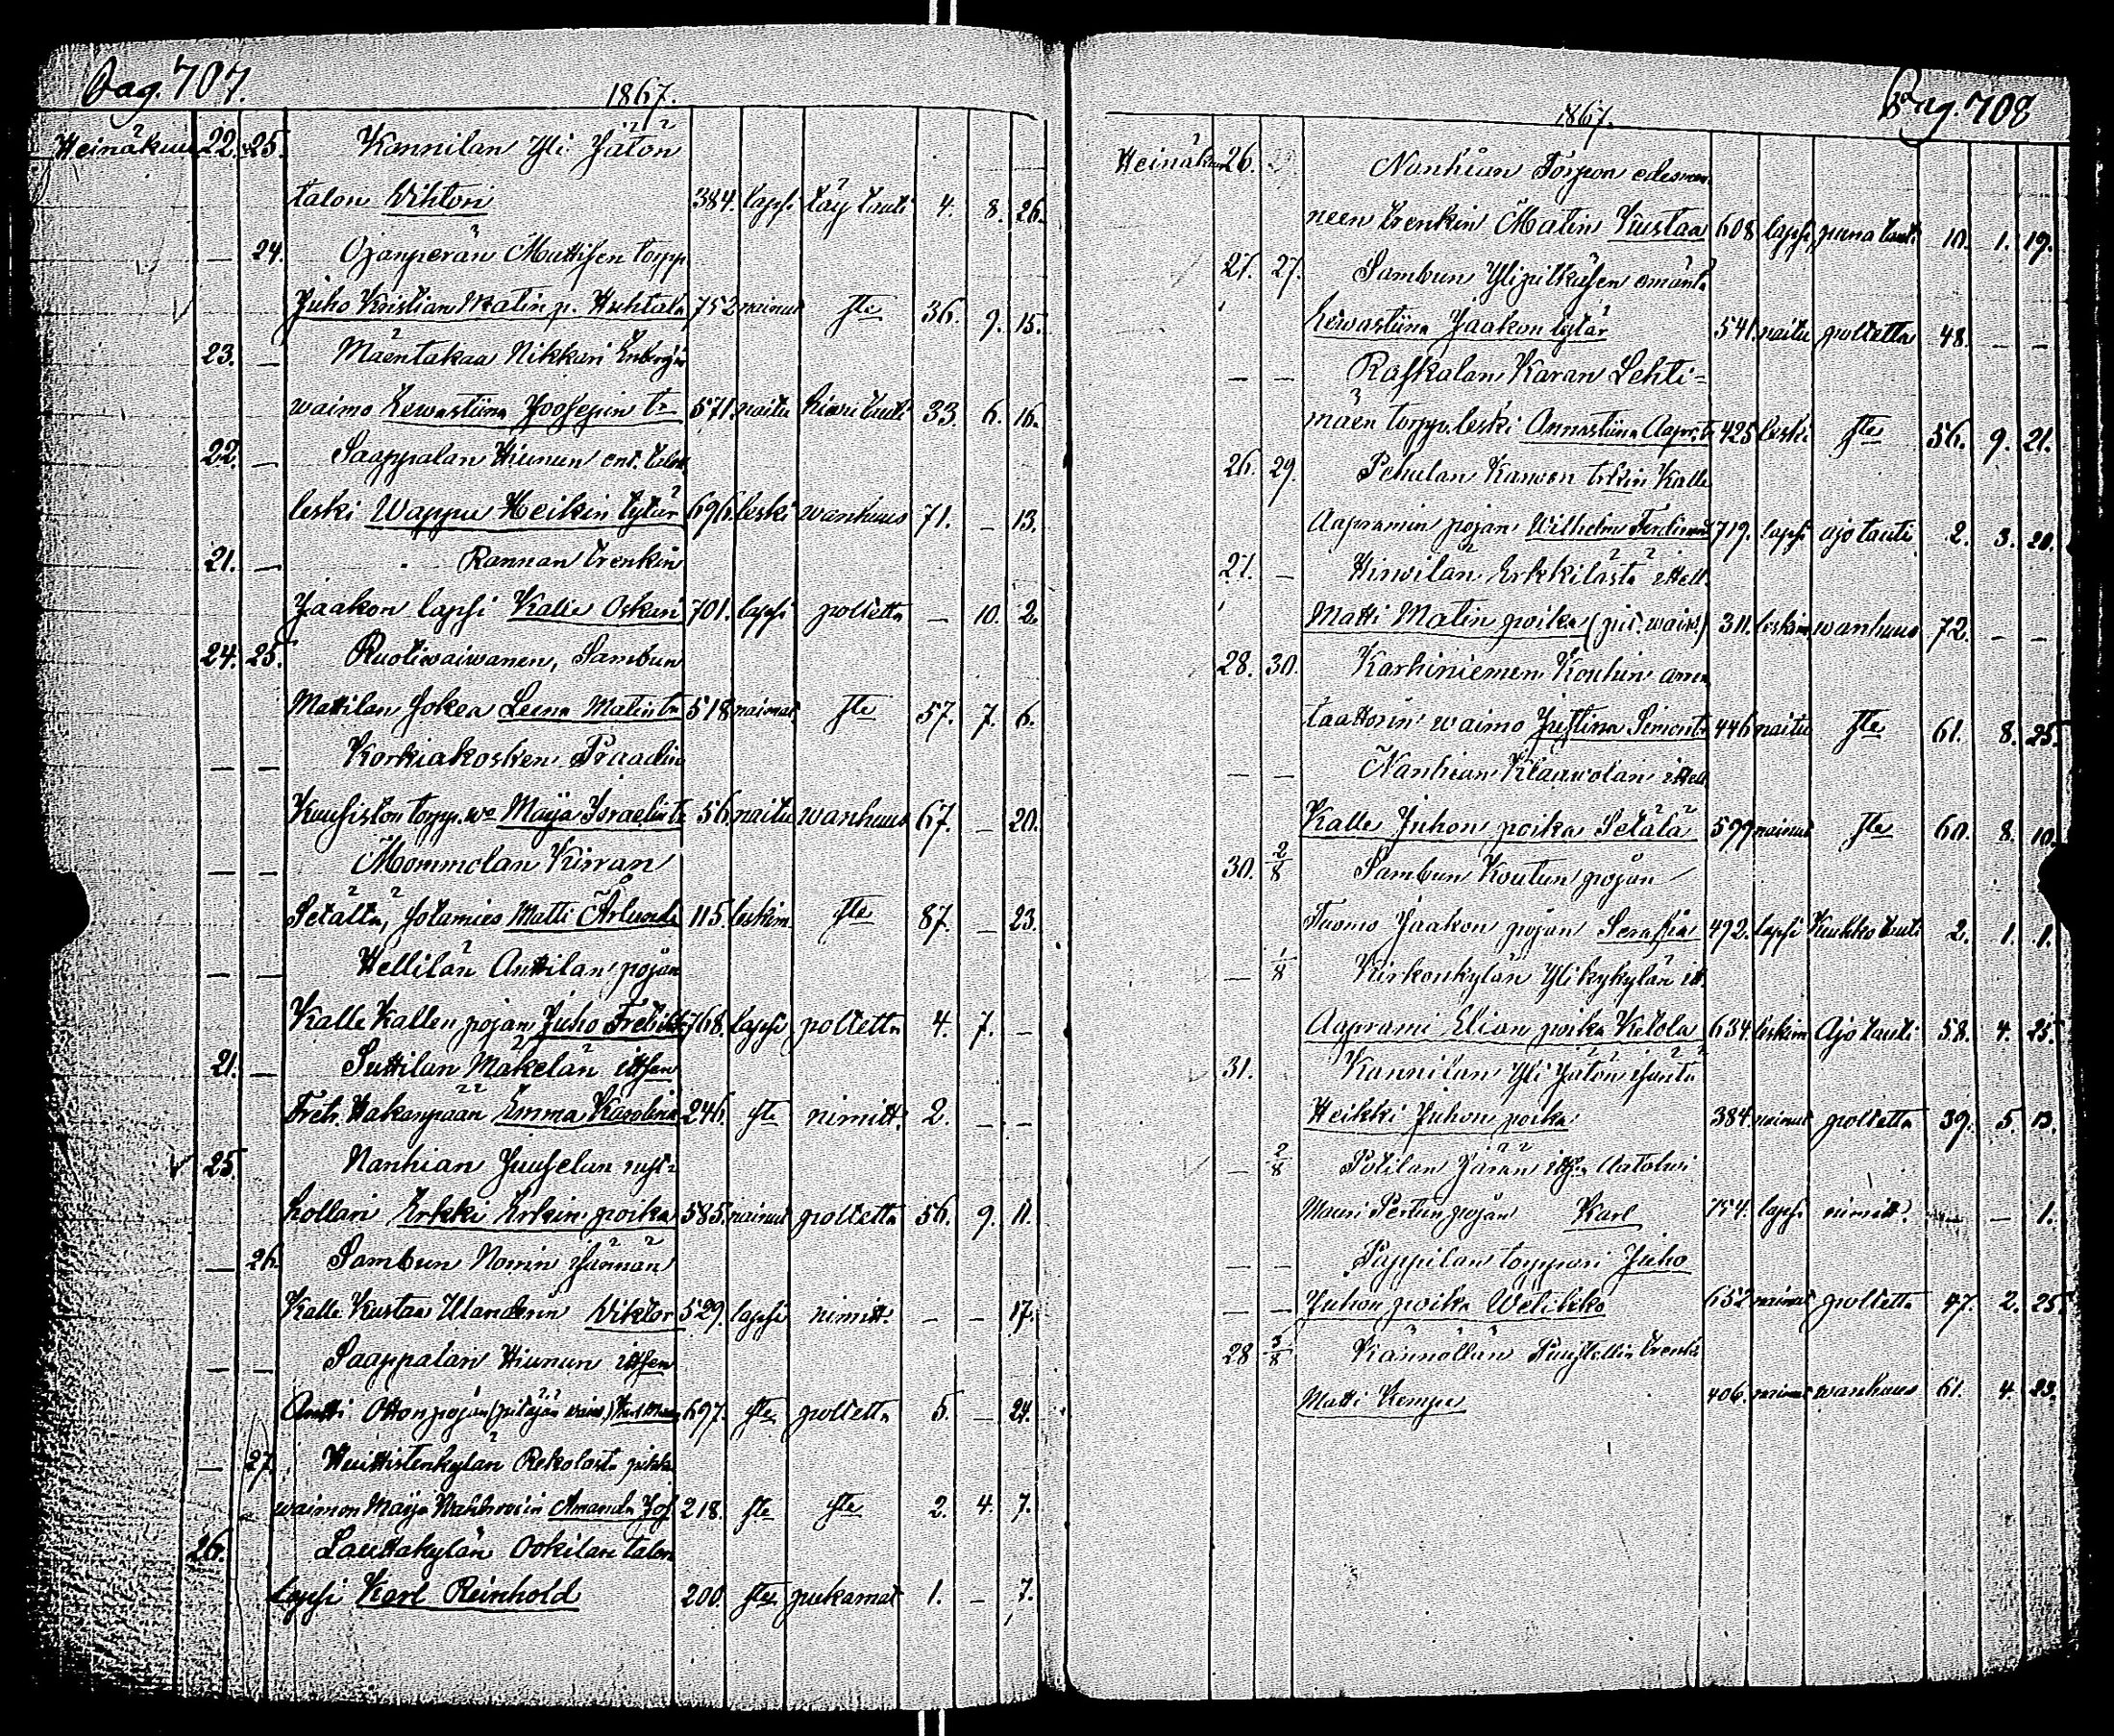 Pag. 707.
1867.
Heinäkuu 22. 25. Kannilan Yli Jätön
talon Wihtori 384. lapsi täy tauti 4. 8. 26.
— 24. Ojanperän Mattisen torpp.
Juho Kristian Matin p. Huhtala 752 nainut ste 36. 9. 15.
23. — Mäentakaa Nikkari Enbergin
waimo Eewastiina Joosepin tr 571. naitu 33. 6. 16.
22. — Saappalan Hiunun ent. talon
leski Wappu Heikin tytär 696. leski wanhuus 71. — 13.
21. — Rannan trenkin
Jaakon lapsi Kalle Oskari 701. lapsi poltetta — 10. 2.
24. 25. Ruotiwaiwanen, Sambun
Mattilan Sokea Leena Matintr 518 naimat. ste 57. 7. 6.
— — Korkiakosken Praadin
Kuusiston torpp. wo Maija Israelintr 56. naitu wanhuus 67. — 20.
— — Mommolan Kirran
Setältä, Sotamies Matti 115. leskim. ste 87. — 23.
— — Hellilän Anttilan pojan
Kalle Kallen pojan Juho Fredrik 768. lapsi poltetta 4. 7. —
21. — Suttilan Mäkelän ittsen
Fred. Hakanpään Emma Karolina 246. ste nimitt. 2. — —
25. Nanhian Juuselan nyst-
kollari Erkki Erkin poika 585. nainut poltetta 56. 9. 11.
— 26. Sambun Norrin isännän
Kalle Kustaa Ulanderin Wiktor 529. lapsi nimitt. — — 17.
— — Saappalan Hiunun ittsen
Antti Otton pojan (pitäjän waiw.) 697. ste poltetta 5. — 24.
— 27. Huittistenkylän Rekolasta piika
waimon Maija Amanda Jos. 218. ste ste 2. 4. 7.
26. Lauttakylän Ookilan talon
lapsi Karl Reinhold 200. ste puekamat 1. — 7.
Pag. 708
1867.
Heinäkuu 26. Nanhian Torpon edesmen
neen trenkin Matin Kustaa 608 lapsi puna tauti 10. 1. 19.
27. 27. Sambun Ylipitkäsen emäntä
Eewastiina Jaakon tytär 541. naitu poltetta 48. — —
— — Raskalan Karan Lehti=
mäen torpp. leski Annastiina Aapr. tr 425 leski ste 56. 9. 21.
26. 29. Pehulan Karwen trkin Kalle
Aapramin pojan Wilhelm Ferdinand 719. lapsi ajo tauti 2. 3. 20.
27. — Hirwilän Erkkilästä ittell.
Matti Matin poika (pit. waiw.) 311. leskim wanhuus 72. — —
28. 30. Karhiniemen Kouhin arren
taattorin waimo Justina Simontr 446 naitu ste 61. 8. 25.
— — Nanhian Klaawolan ittell
Kalle Juhon poika Setälä 599 nainut ste 60. 8. 10.
30. 2/8 Sambun Koutun pojan
Tuomo Jaakon pojan Serafia 492. lapsi Kuukko tauti 2. 1. 1.
— 1/8 Kirkonkylän Ylikykylän itt.
Aaprami Elian poika Ketola 634. leskim Ajo tauti 58. 4. 25.
31. Kannilan Yli Jätön isäntä
Heikki Juhon poika 384. nainut poltetta 39. 5. 13.
— 2/8 Potilan Järän
Mauri Pertun pojan Karl 754. lapsi nimitt. — — 1.
— — Pappilan torppari Juho
— — Juhon poika Welikko 652 nainut poltetta 47. 2. 25.
28 3/8 Kännölän trenki
Matti Kemppe 406. nainut wanhuus 61. 4. 23.